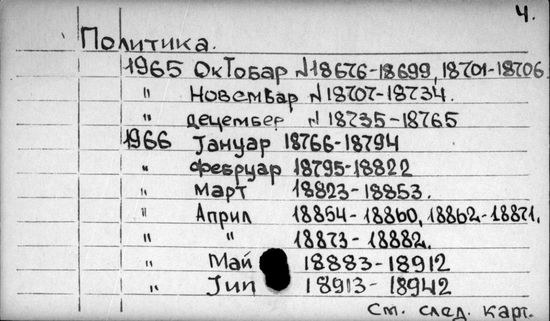 4.
Политика.
1965 Октобар № 18676-18699, 18701-18706
" Новембар № 18707-18734.
" децембер № 18735-18765
1966 Јануар 18766-18794
" фебруар 18795-18822
" март 18823-18853.
" Април 18854-18860, 18862-18871.
" " 18873-18882.
" Май 18883-18912
" Јип 18913-18942
См. след. карт.